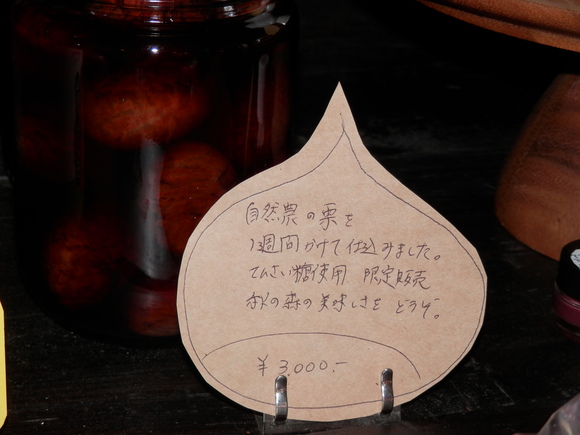 自然農の栗を
1週間かけて仕込みました。
てんさい糖使用 限定販売
秋の森の美味しさを どうぞ。
¥3,000.-